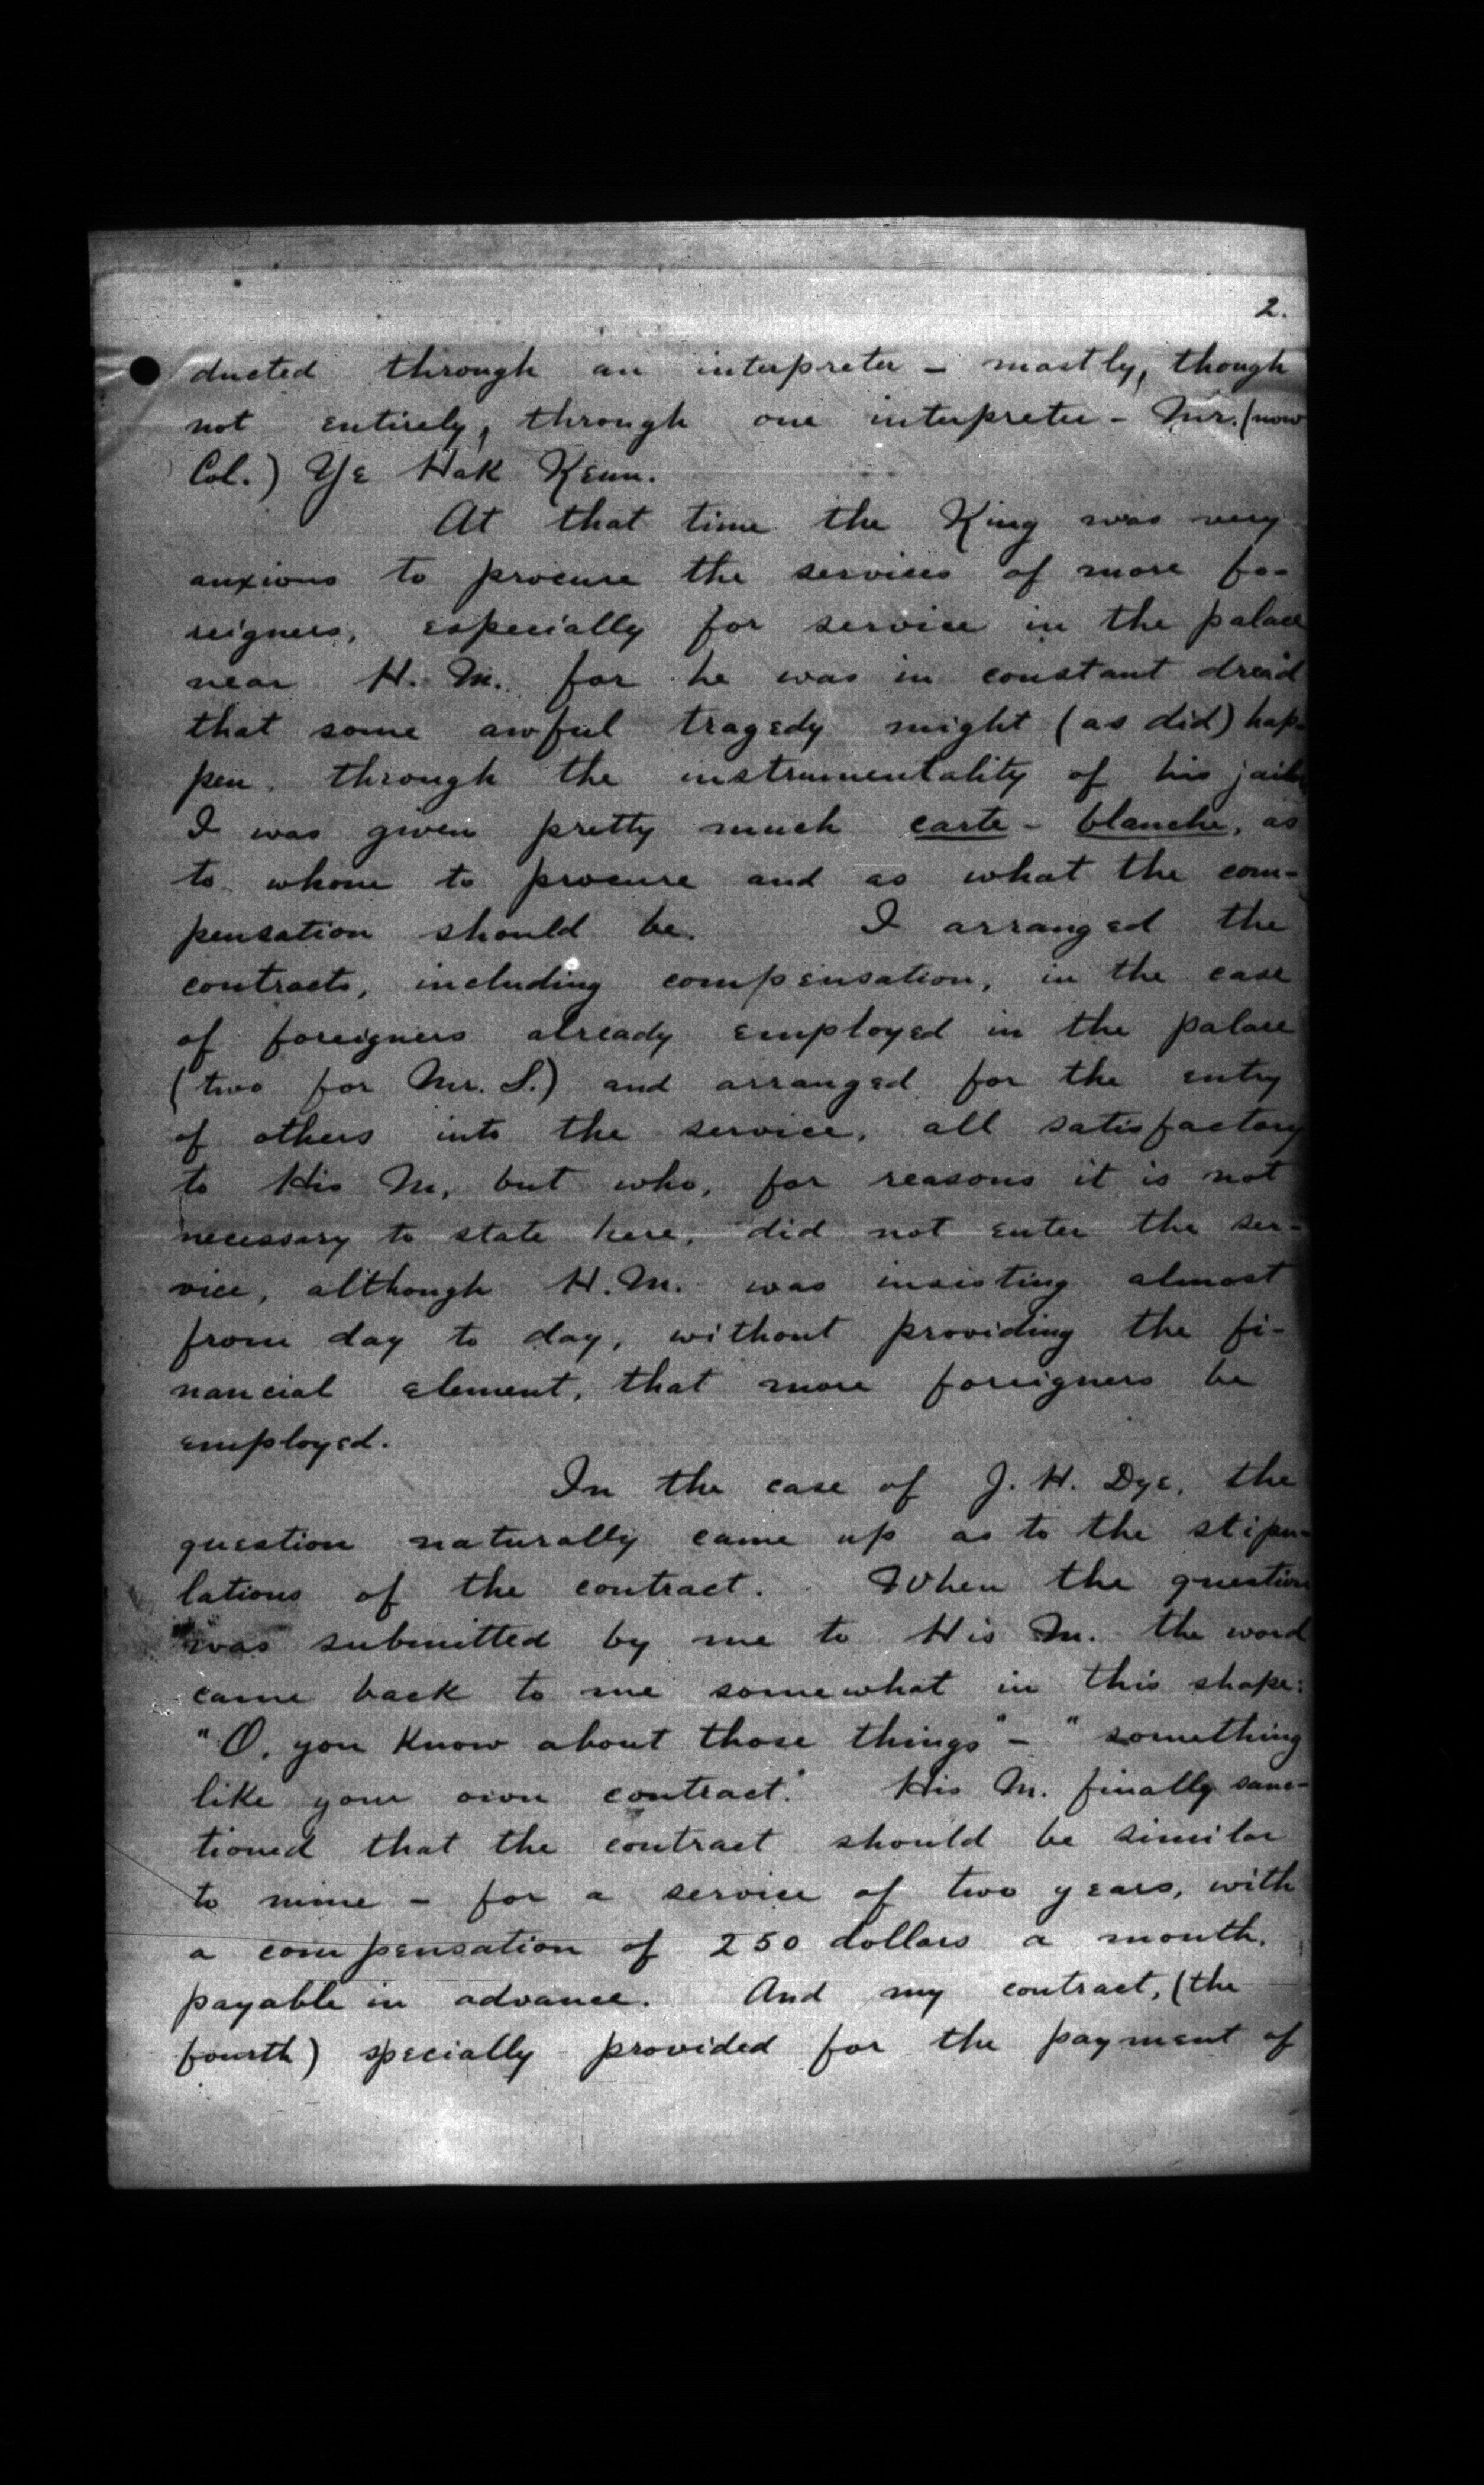 2.
ducted through an interpreter – mostly, though
not entirely, through one interpreter – Mr. (now
Col.) Ye Hak Keun.
At that time the King was very
anxious to procure the services of more fo-
reigners, especially for service in the palace
near H. M. for he was in constant dread
that some awful tragedy might (as did) hap-
pen, through the instrumentality of his
I was given pretty much carte-blanche, as
to whom to procure and as what the com-
pensation should be. I arranged the
contracts, including compensation, in the case
of foreigners already employed in the palace
(two for Mr. S.) and arranged for the entry
of others into the service, all satisfactory
to His M, but who, for reasons it is not
necessary to state here, did not enter the ser-
vice, although H.M. was insisting almost
from day to day, without providing the fi-
nancial element, that more foreigners be
employed.
In the case of J. H. Dye, the
question naturally came up as to the stipu-
lations of the contract. When the question
was submitted by me to His M. the word
came back to me somewhat in this shape:
"O, you know about those things" – "something
like your own contract." His M. finally sanc-
tioned that the contract should be similar
to mine – for a service of two years, with
a compensation of 250 dollars a month,
payable in advance. And my contract, (the
fourth) specially provided for the payment of